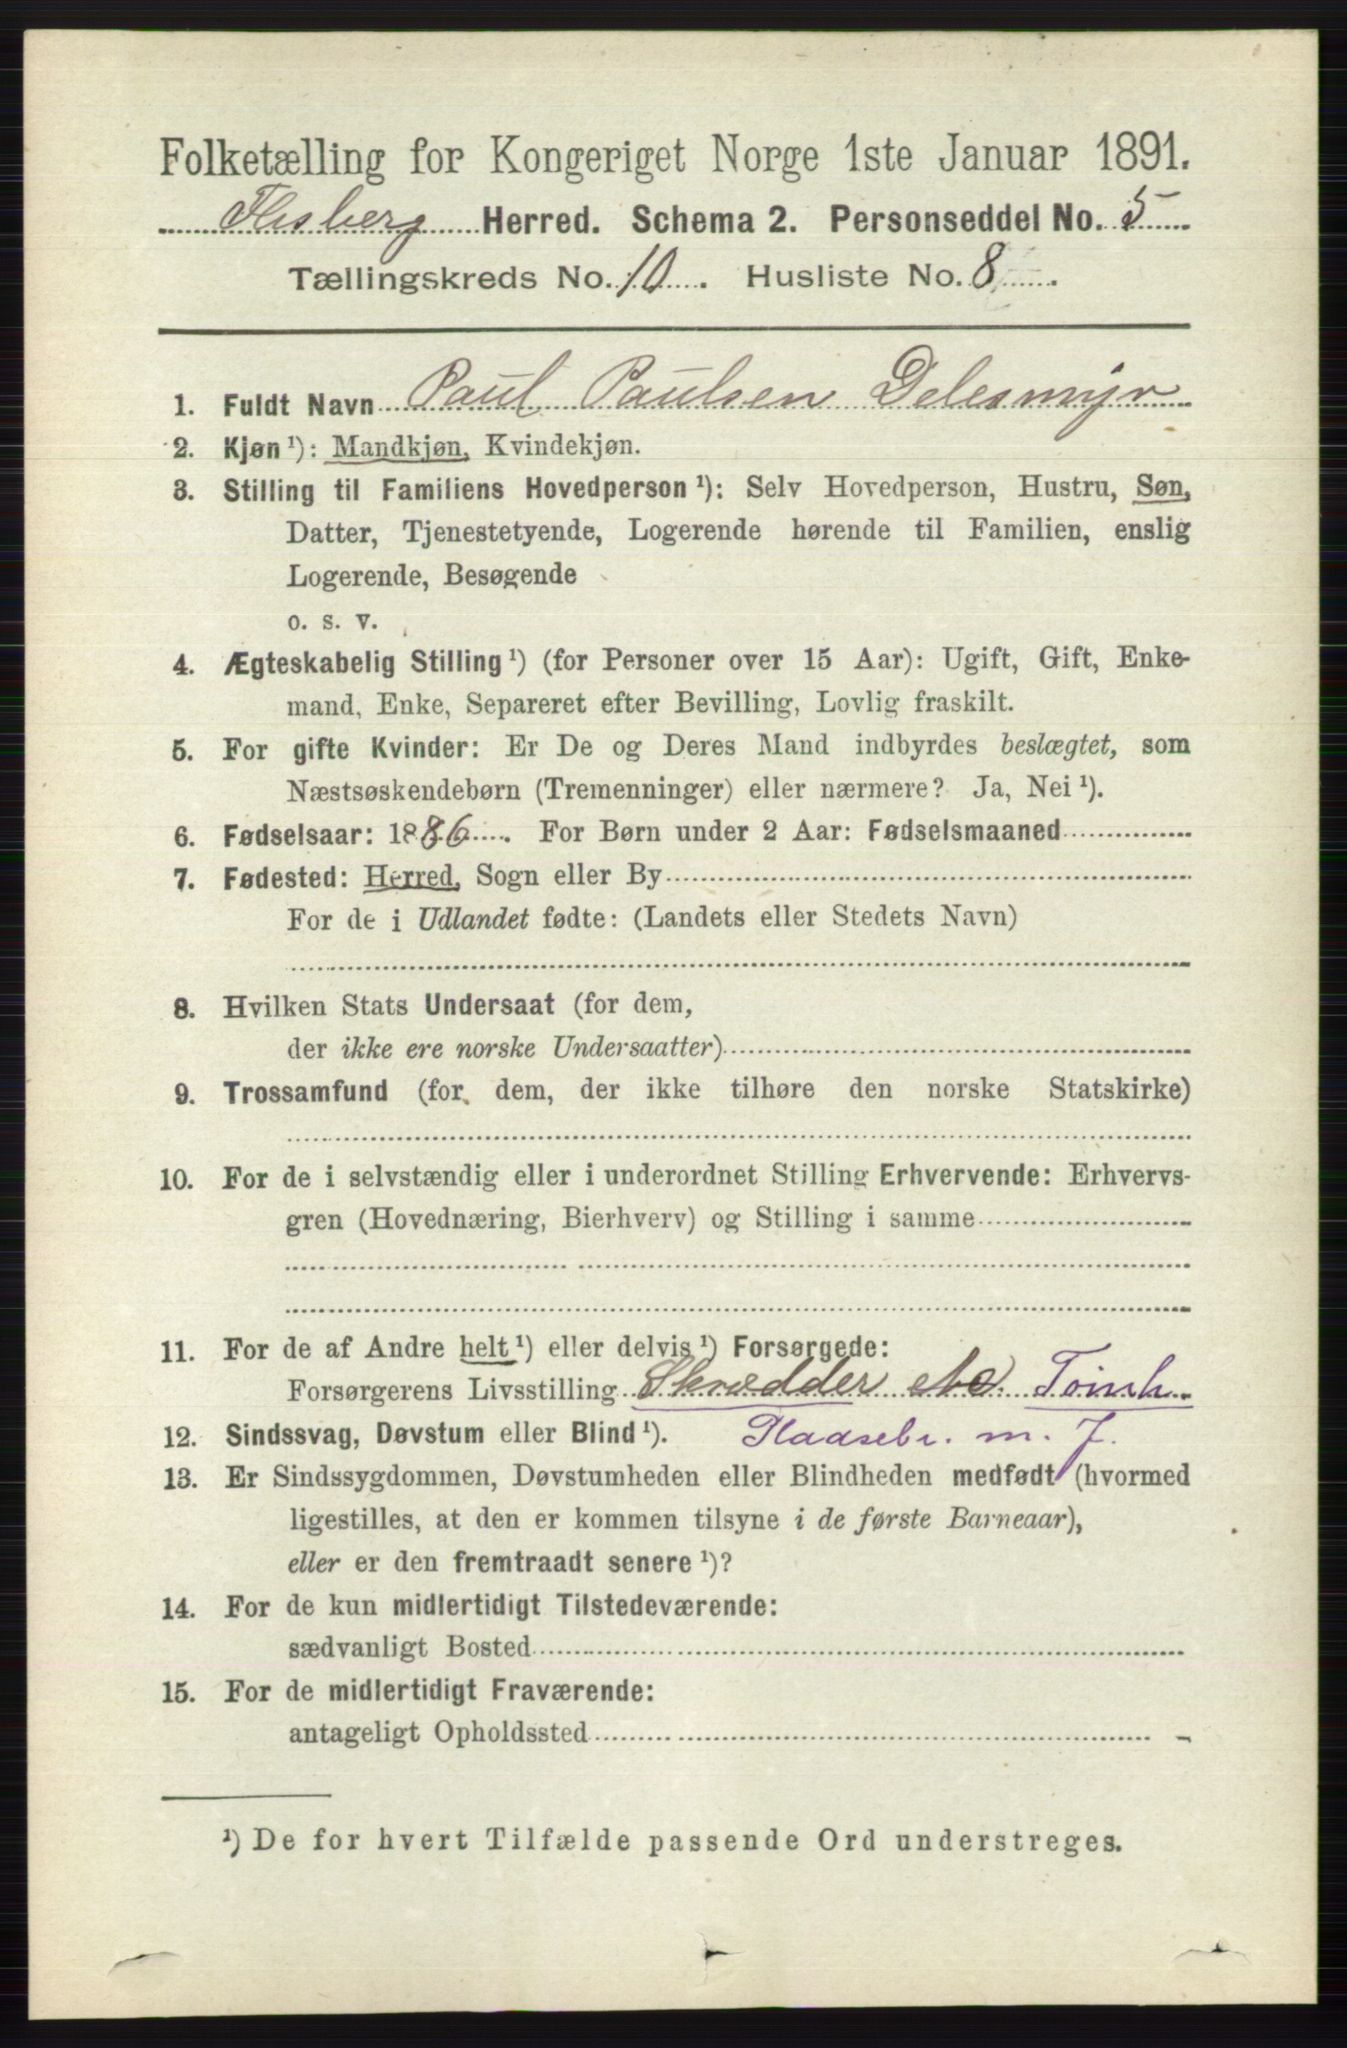 Folketælling for Kongeriget Norge 1ste Januar 1891.
Flesberg Herred. Schema 2. Personseddel No. 5
Tællingskreds No. 10. Husliste No. 8.
1. Fuldt Navn Paul Paulsen Delesmyr
2. Kjøn ¹): Mandkjøn, Kvindekjøn.
3. Stilling til Familiens Hovedperson ¹): Selv Hovedperson, Hustru, Søn,
Datter, Tjenestetyende, Logerende hørende til Familien, enslig
Logerende, Besøgende
o. s. v.
4. Ægteskabelig Stilling ¹) (for Personer over 15 Aar): Ugift, Gift, Enke-
mand, Enke, Separeret efter Bevilling, Lovlig fraskilt.
5. For gifte Kvinder: Er De og Deres Mand indbyrdes beslægtet, som
Næstsøskendebørn (Tremenninger) eller nærmere? Ja, Nei ¹).
6. Fødselsaar: 1886. For Børn under 2 Aar: Fødselsmaaned
7. Fødested: Herred, Sogn eller By
For de i Udlandet fødte: (Landets eller Stedets Navn)
8. Hvilken Stats Undersaat (for dem,
der ikke ere norske Undersaatter)
9. Trossamfund (for dem, der ikke tilhøre den norske Statskirke)
10. For de i selvstændig eller i underordnet Stilling Erhvervende: Erhvervs-
gren (Hovednæring, Bierhverv) og Stilling i samme
11. For de af Andre helt ¹) eller delvis ¹) Forsørgede:
Forsørgerens Livsstilling Skrædder
12. Sindssvag, Døvstum eller Blind ¹). Pladsebr. m. J.
13. Er Sindssygdommen, Døvstumheden eller Blindheden medfødt (hvormed
ligestilles, at den er kommen tilsyne i de første Barneaar),
eller er den fremtraadt senere ¹)?
14. For de kun midlertidigt Tilstedeværende:
sædvanligt Bosted
15. For de midlertidigt Fraværende:
antageligt Opholdssted
¹) De for hvert Tilfælde passende Ord understreges.